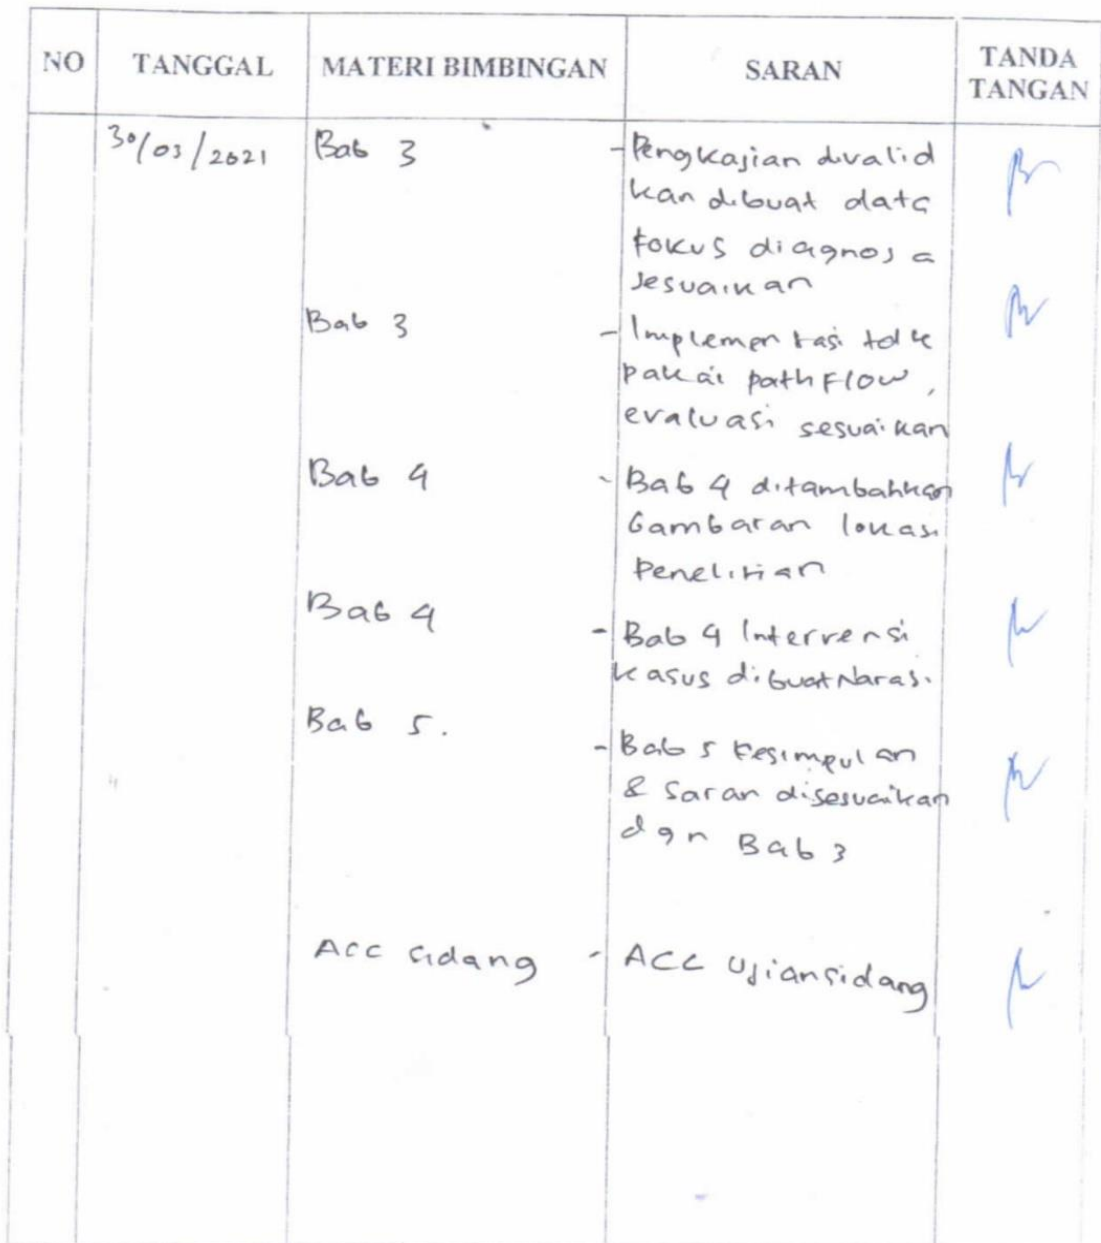 NO TANGGAL MATERI BIMBINGAN SARAN TANDA TANGAN
30/03/2021 Bab 3 - Pengkajian divalid
kan dibuat data
fokus diagnosa
sesuaikan
Bab 3 - Implementasi
pakai pathFlow,
evaluasi sesuaikan
Bab 4 - Bab 4 ditambahkan
Gambaran lokasi
Penelitian
Bab 4 - Bab 4 Intervensi
kasus dibuat Narasi
Bab 5. - Bab 5 kesimpulan
& Saran disesuaikan
dgn Bab 3
Acc sidang - ACC Ujian sidang